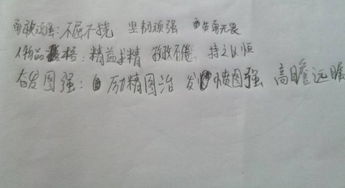 勇敢顽强：不屈不挠 坚韧顽强 无畏
人物品格：精益求精 孜孜不倦 持之以恒
奋发图强：励精图治 发愤图强 高瞻远瞩